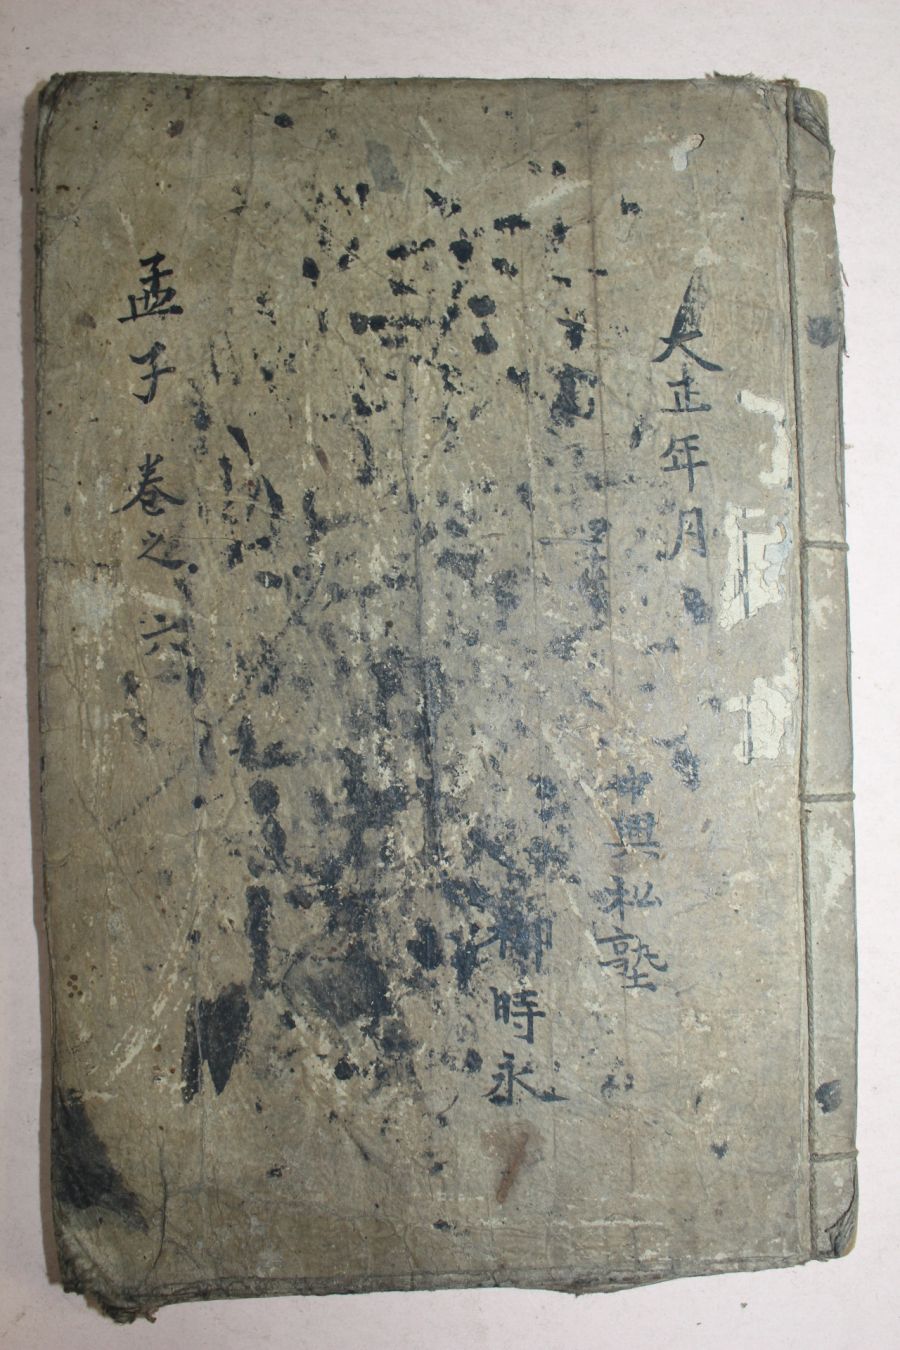 大正年月
中興私塾
柳時永
孟子 卷之六